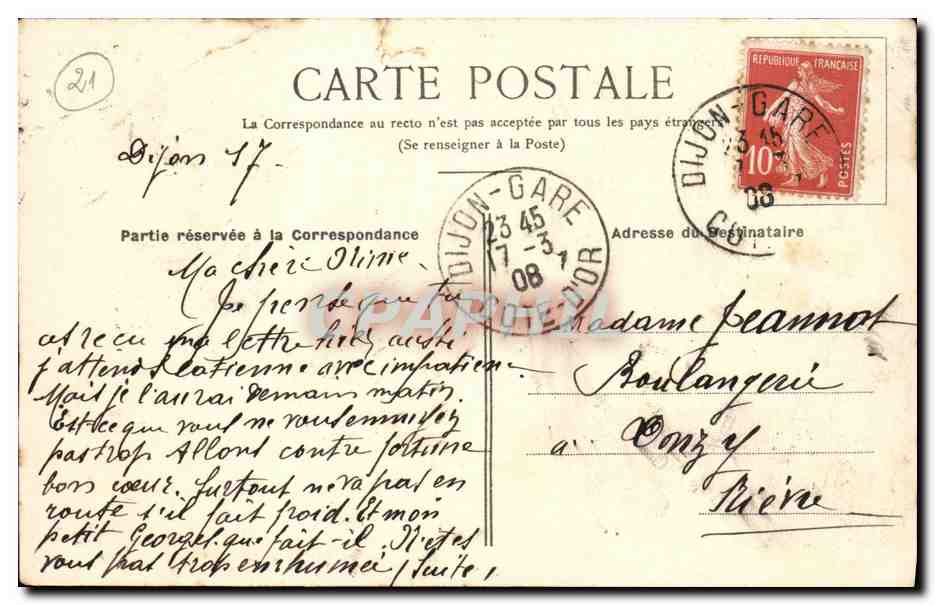 21
CARTE POSTALE
La Correspondance au recto n'est pas acceptée par tous les pays étrangers
(Se renseigner à la Poste)
REPUBLIQUE FRANÇAISE
10
POSTES
DIJON-GARE
08
Dijon 17
DIJON-GARE
23 45
17 - 3
08
CÔTE-D'OR
Partie réservée à la Correspondance
Adresse du Destinataire
Ma chère
Je pense que tu
as recu ma lettre hier
j'attend la tienne avec impatien
Mais je l'aurai demain matin
Est ce que vous ne vous ennuyez
pas trop Allons contre fortune
bon cœur. Surtout ne va pas en
route s'il fait froid. Et mon
petit Georges que fait-il. N'etes
vous pas trop enrhumée (Suite)
Madame Jeannot
Boulangerie
à Donzy
Nièvre
CPAPHIL